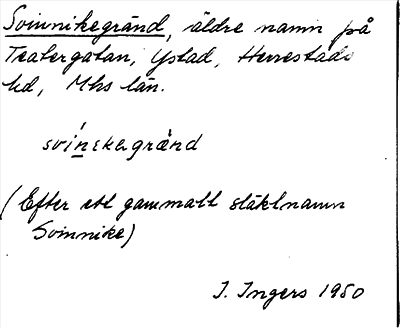 Svinnikegränd, äldre namn på
Teatergatan, Ystad, Herrestads
hd, Mhs län.
svínekegränd
(Efter ett gammalt släktnamn
Svinnike)
I. Ingers 1950